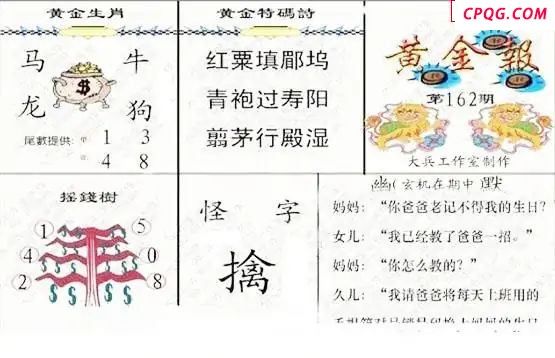 CPQG.COM
黄金生肖
马 牛
龙 狗
尾數提供:单 1 3
4 8
黄金特碼詩
红粟填郿坞
青袍过寿阳
翦茅行殿湿
黄金報
第162期
大兵工作室制作
摇錢樹
1 5
4 0
2 8
怪 字
擒
幽(玄机在期中 默
妈妈:“你爸爸老记不得我的生日?
女儿:“我已经教了爸爸一招。”
妈妈:“你怎么教的?”
久儿:“我请爸爸将每天上班用的